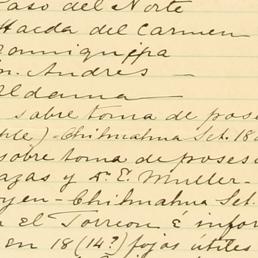 Paso del Norte
Hacda del Carmen
n. Andres —
Aldama
sobre toma de pose
) - Chihuahua Set. 18
sobre toma de poses
azas y Dr. E. Muller -
yen - Chihuahua Set.
el Torreon, é infor
en 18 (14?) fojas útiles